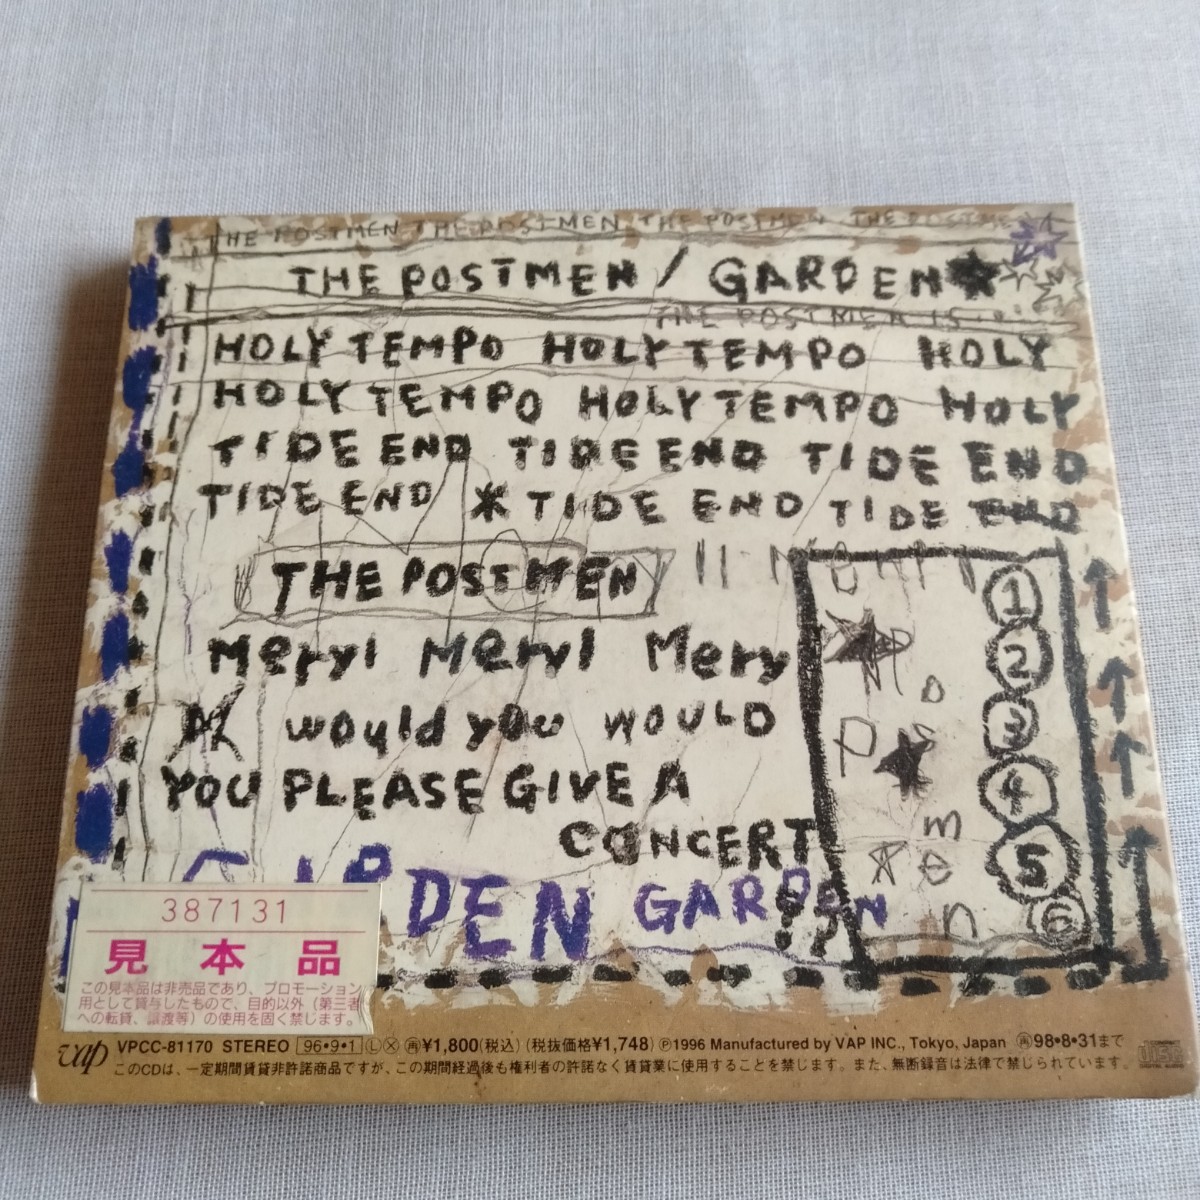 THE POSTMEN THE POSTMEN THE POSTMEN THE POSTME
THE POSTMEN / GARDEN★
THE POSTMEN IS
HOLY TEMPO HOLY TEMPO HOLY
HOLY TEMPO HOLY TEMPO HOLY
TIDE END TIDE END TIDE END
TIDE END * TIDE END TIDE END
THE POSTMEN
Meryl Meryl Mery
would you WOULD
YOU PLEASE GIVE A
CONCERT
DEN GARDEN
1
2
3
4
5
6
387131
見本品
この見本品は非売品であり、プロモーション
用として貸与したもので、目的以外（第三者
への転貸、譲渡等）の使用を固く禁じます。
vap VPCC-81170 STEREO 96・9・1 Ⓛ Ⓧ 再¥1,800(税込) (税抜価格¥1,748) Ⓟ1996 Manufactured by VAP INC., Tokyo, Japan 再98・8・31まで
このCDは、一定期間賃貸非許諾商品ですが、この期間経過後も権利者の許諾なく賃貸業に使用することを禁じます。また、無断録音は法律で禁じられています。